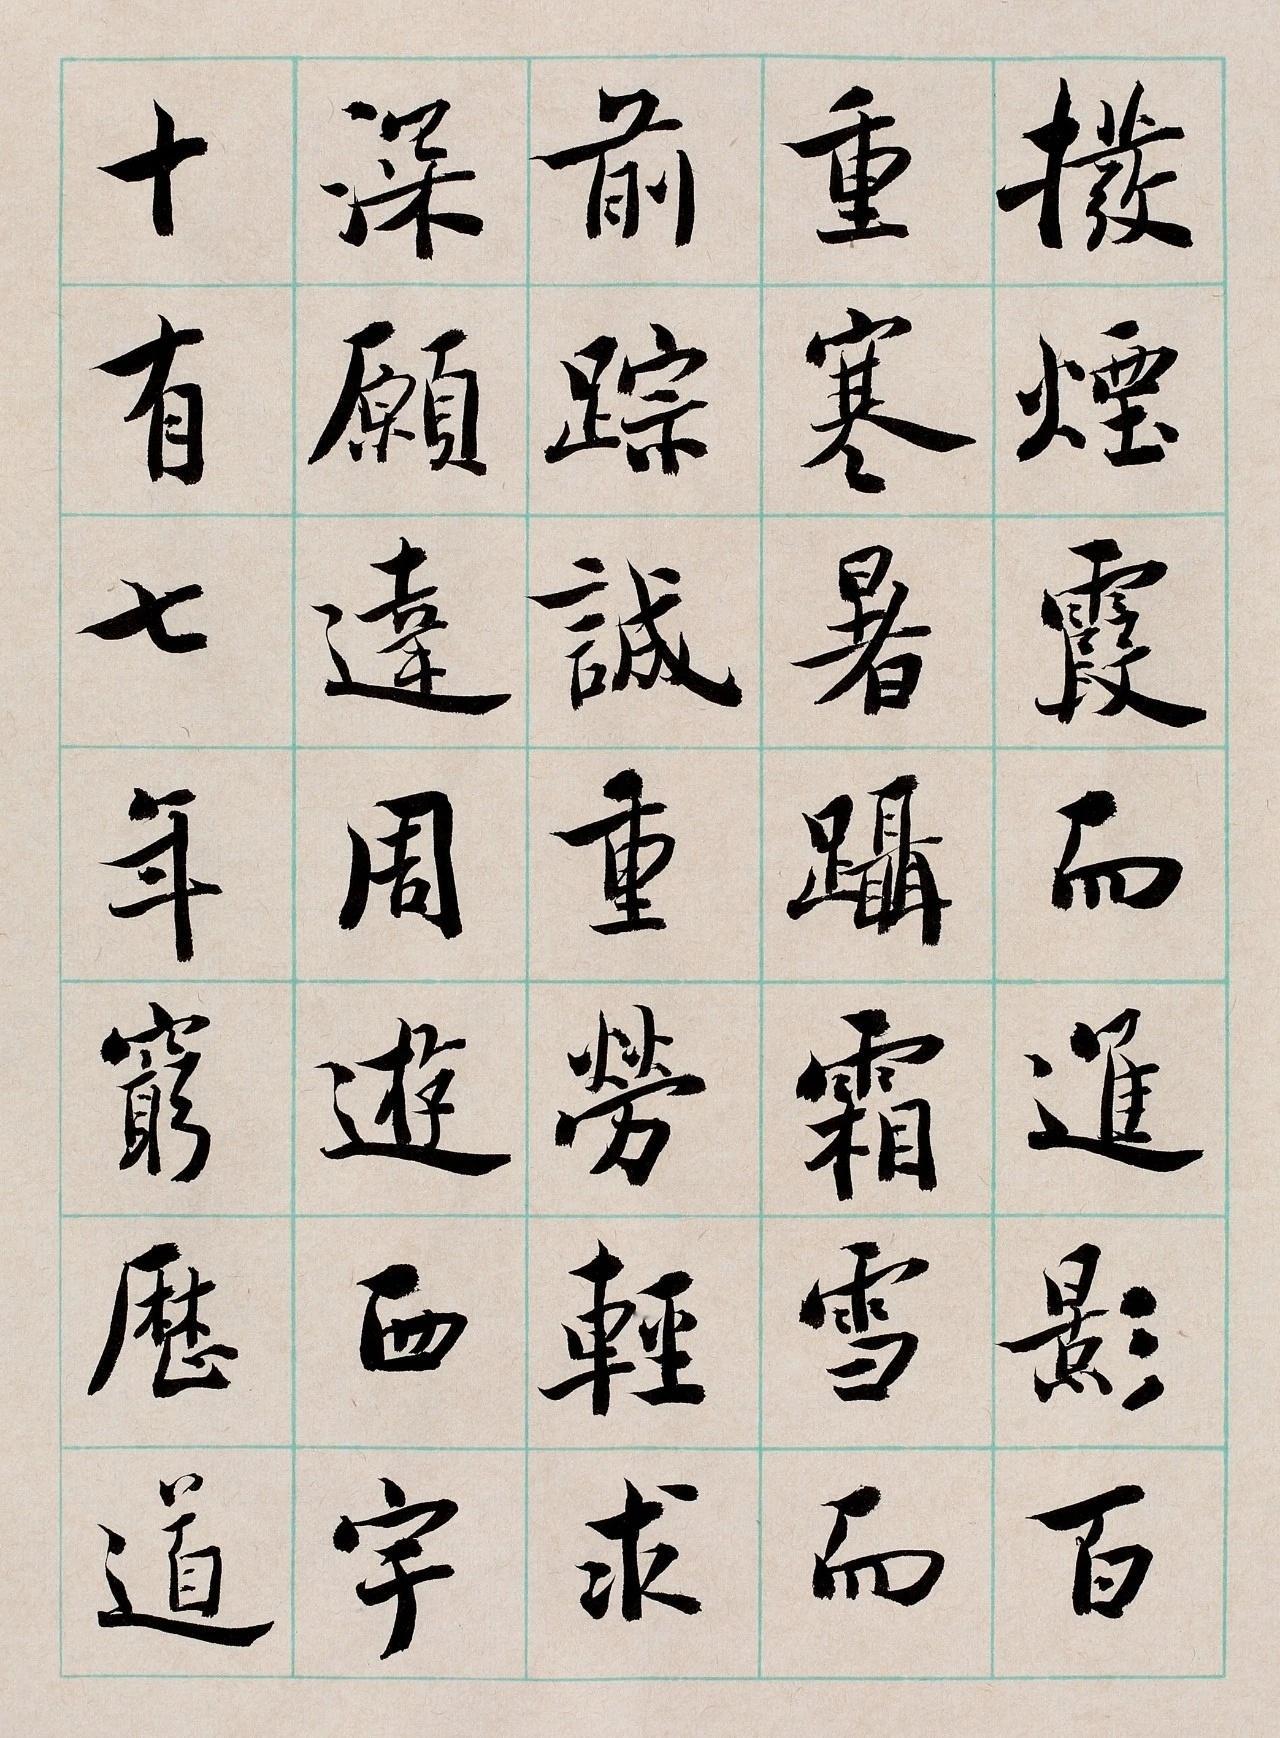 撥煙霞而進影百
重寒暑躡霜雪而
前踪誠重勞輕求
深願達周遊西宇
十有七年窮歷道